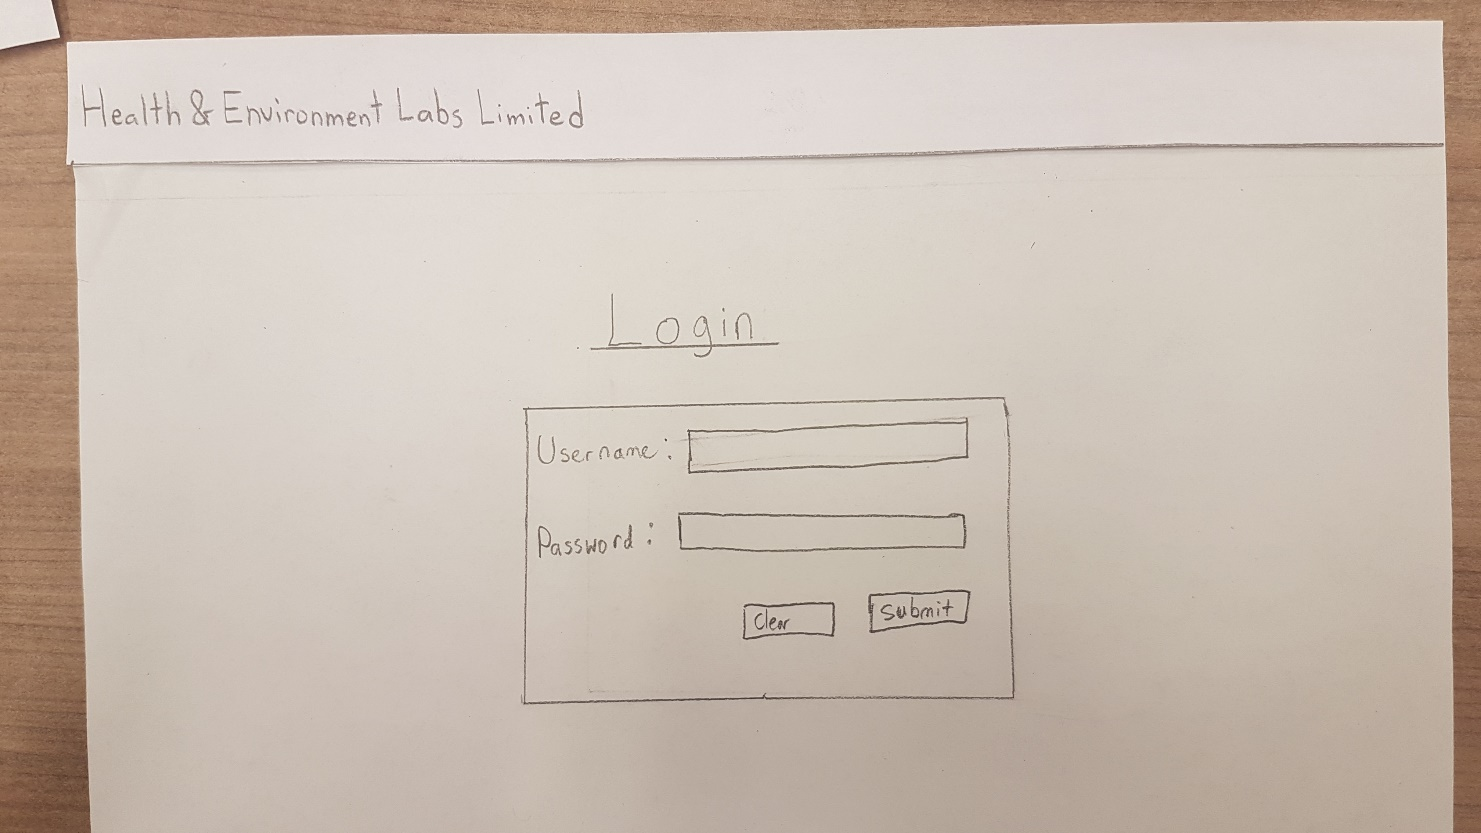 Health & Environment Labs Limited
Login
Username:
Password:
Clear Submit